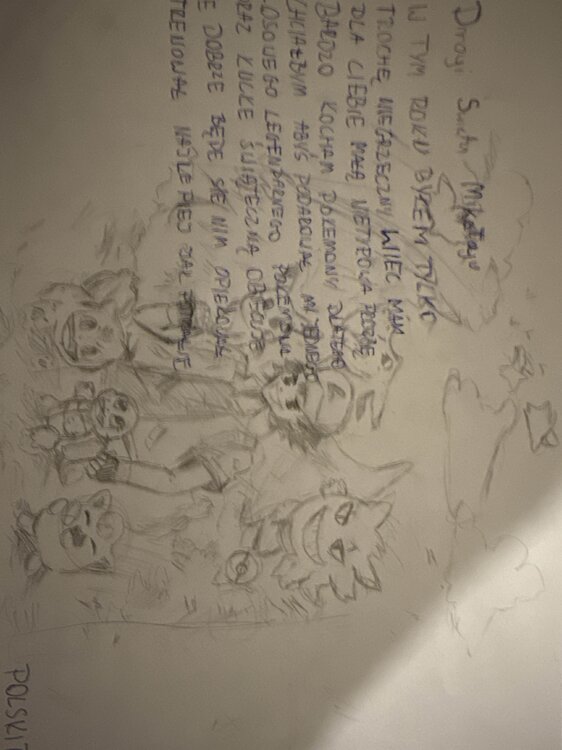 Drogi Mikołaju
W TYM ROKU BYŁEM TYLKO
TROCHĘ NIEGRZECZNY WIEC MAM
DLA CIEBIE MAŁĄ NIETYPOWĄ PROŚBĘ
BARDZO KOCHAM POKEMONY DLATEGO
CHCIAŁBYM ABYŚ PODAROWAŁ MI JEDNEGO
LOSOWEGO LEGENDARNEGO POKEMONA
RAZ KUCKE ŚWIĄTECZNĄ OBIECUJE
E DOBRZE BĘDĘ SIE NIM OPIEKOWAŁ
TRENOWAŁ NAJLEPIEJ JAK
POLSKI